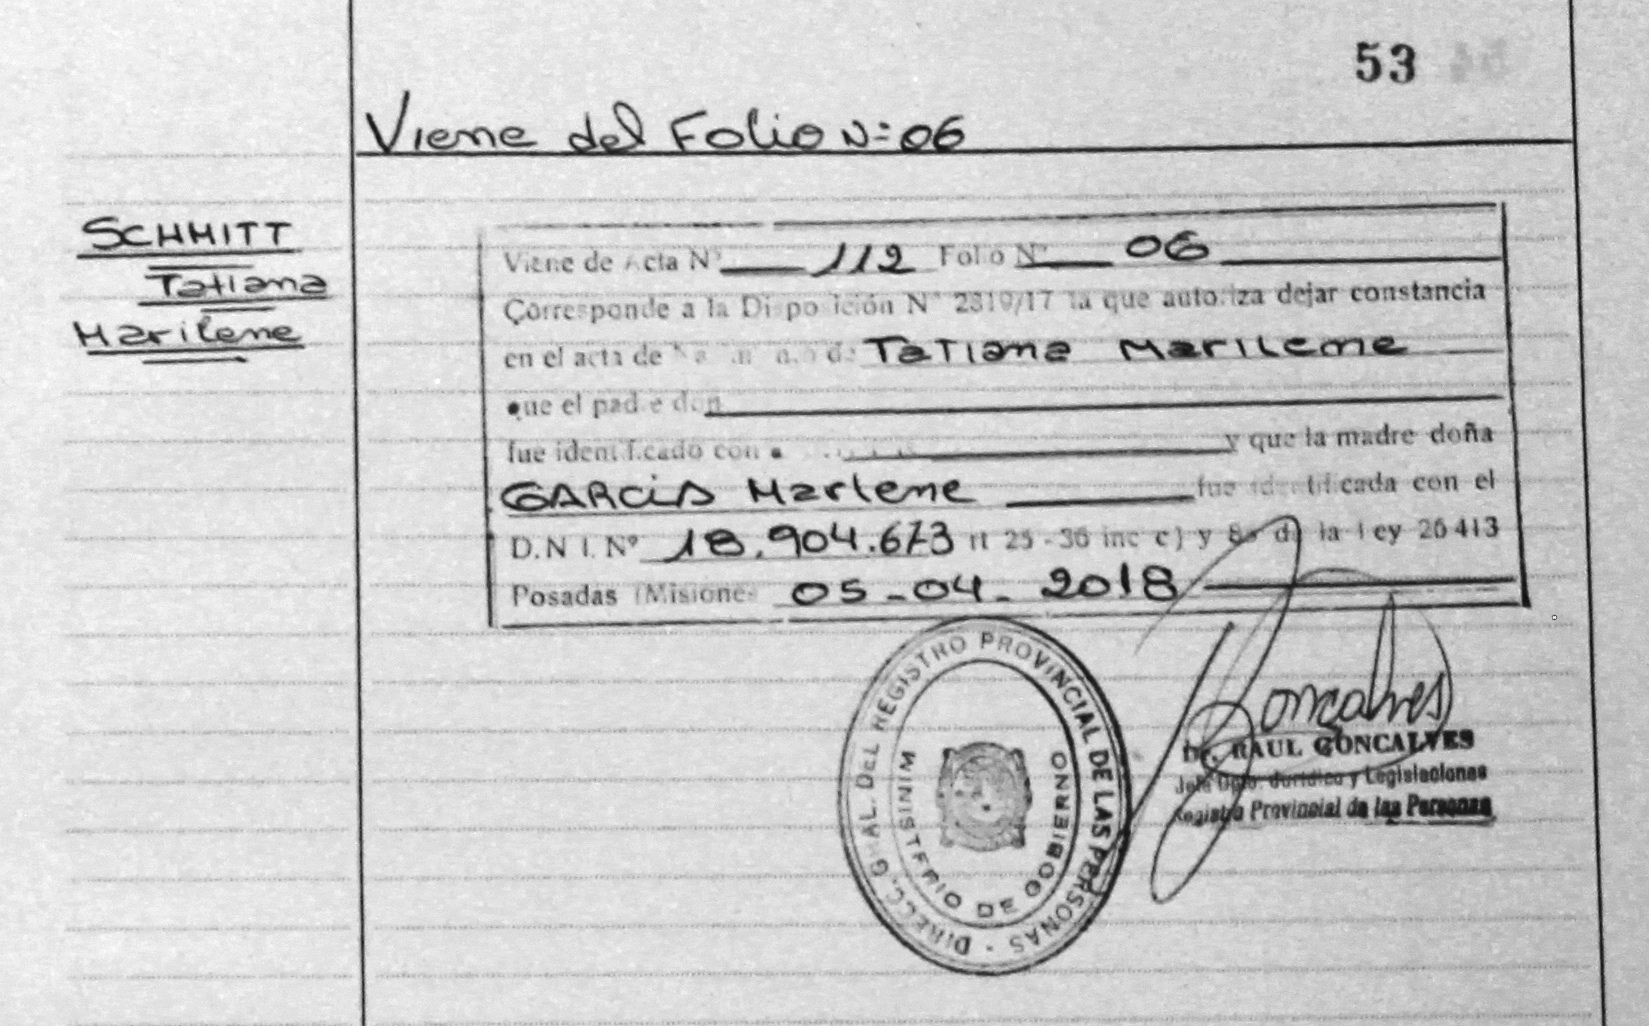 53
Viene del Folio N=06
SCHMITT
Tatiana
Marilene
Viene de Acta Nº 112 Folio Nº 06
Corresponde a la Disposición Nº 2319/17 la que autoriza dejar constancia
en el acta de Tatiana Marilene
que el padre don
fue identificado con y que la madre doña
GARCIA Marlene fue identificada con el
D.N.I. Nº 18.904.673 rt 25-36 inc c) y de la Ley 26413
Posadas (Misiones 05-04-2018
DIRECC. GRAL. DEL REGISTRO PROVINCIAL DE LAS PERSONAS -
MINISTERIO DE GOBIERNO
Goncalves
Dr. RAUL GONCALVES
Jefe Dpto. Jurídico y Legislaciones
Registro Provincial de las Personas